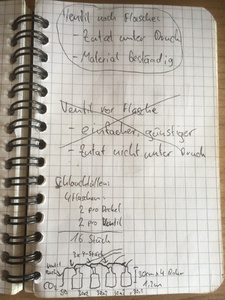 Ventil nach Flasche
- Zutat unter Druck
- Material beständig
Ventil vor Flasche
- einfacher, günstiger
- Zutat nicht unter Druck
Schlauchtüllen:
4 Flaschen:
2 pro Deckel
2 pro Ventil
16 Stück
2x Y-Stück
Ventil
CO₂
30cm x 4
1,2m